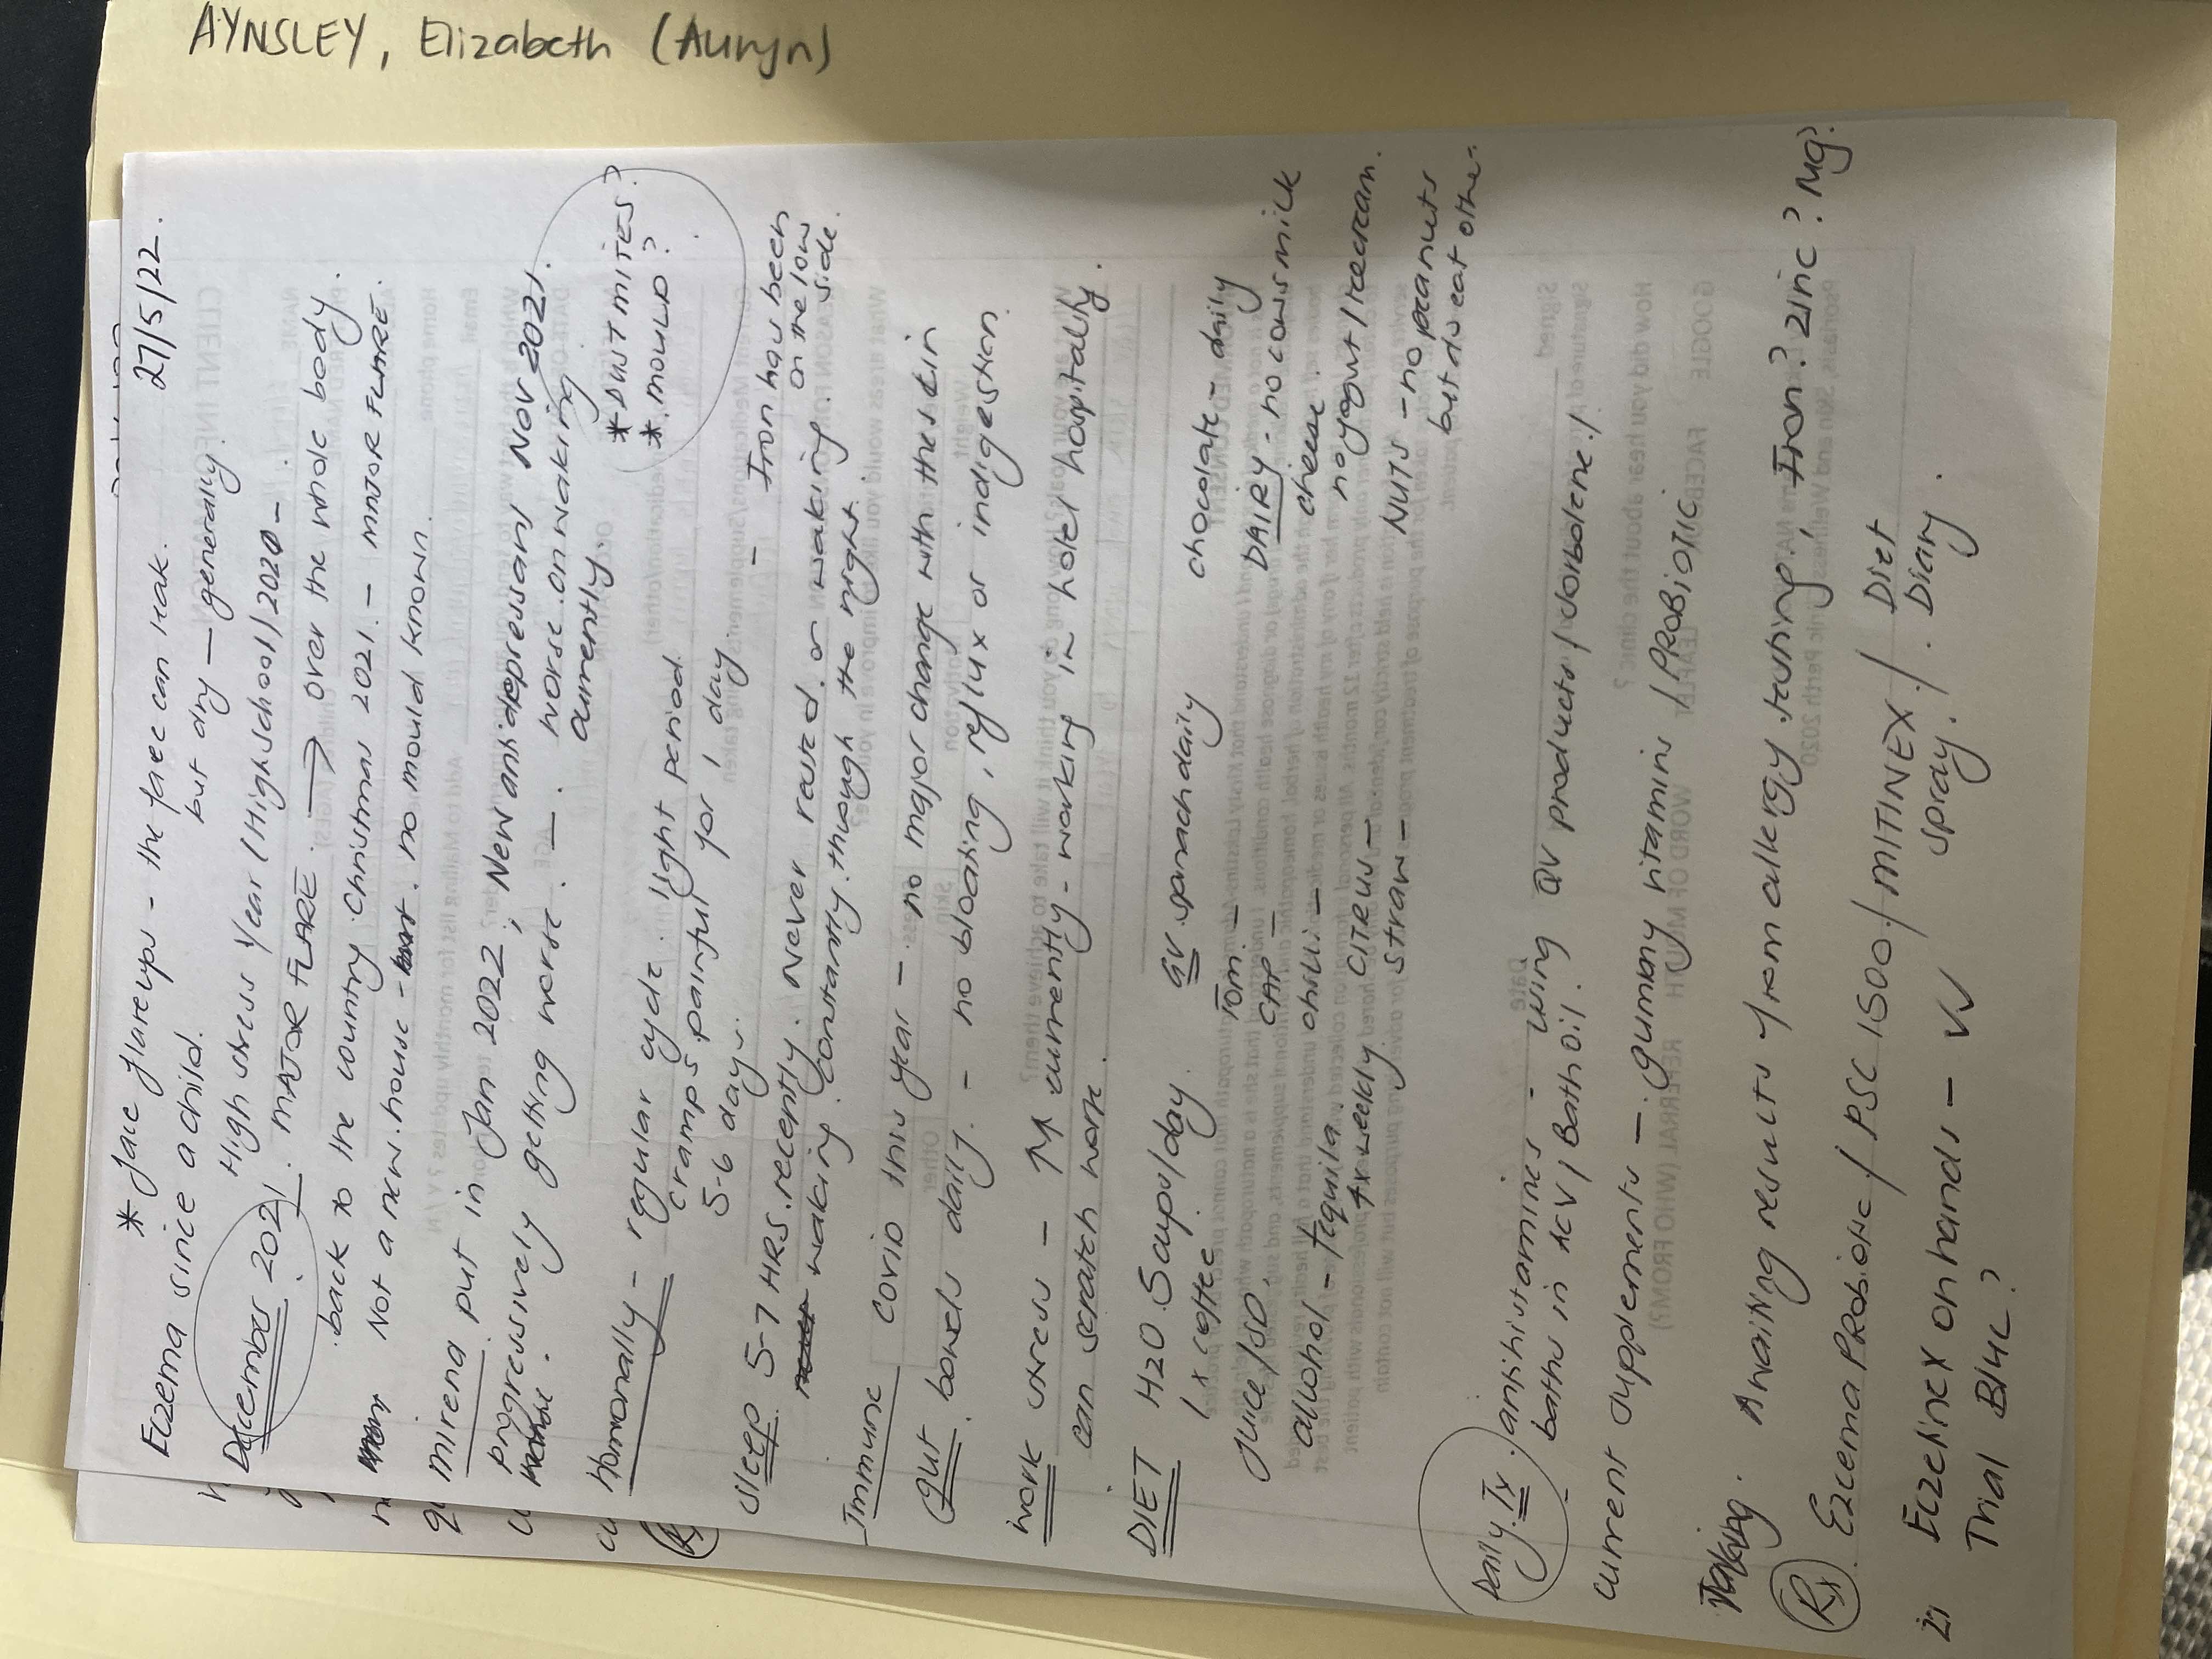 AYNSLEY, Elizabeth (Auryn)
27/5/22
* face flareups - the face can leak.
Eczema since a child. but dry - generally.
High stress Year / Highschool / 2020 -
December 2021. MAJOR FLARE. → over the whole body
back to the country. Christmas 2021. - MAJOR FLARE.
Not a new house - no mould known.
mirena put in Jan 2022, New antidepressant Nov 2021.
progressively getting worse. - worse on waking
currently.
* DUST MITES?
* MOULD?
Hormonally - regular cycle. light period.
cramps painful for 1 day.
5-6 days. - Iron has been
on the low
side.
Sleep 5-7 HRS. recently. Never rested on waking.
waking constantly through the night.
Immune Covid this year - no major change with the skin
Gut. bowels daily. - no bloating, reflux or indigestion.
Work stress - ↑ currently - working in hotel hospitality.
can scratch more.
DIET H2O 5 cups/day. GV. spinach daily chocolate - daily
1x coffee Tom. - DAIRY - no cows milk
Juice/SD. CAP - cheese.
alcohol - Tequila chilli - no yogurt / icecream.
4x weekly CITRUS - NUTS - no peanuts
straw - but do eat other
Daily Tx antihistamines - using QV products / sorbolene /
baths in ACV / Bath Oil.
current supplements - gummy vitamins / PROBIOTIC
Taking. Awaiting results from allergy testing, Iron? Zinc? Mg?
Rx. Ezcema Probiotic / PSC 1500 / MITINEX / Diet
spray. Diary.
Eczelinex on hands - √√
Trial Blue?